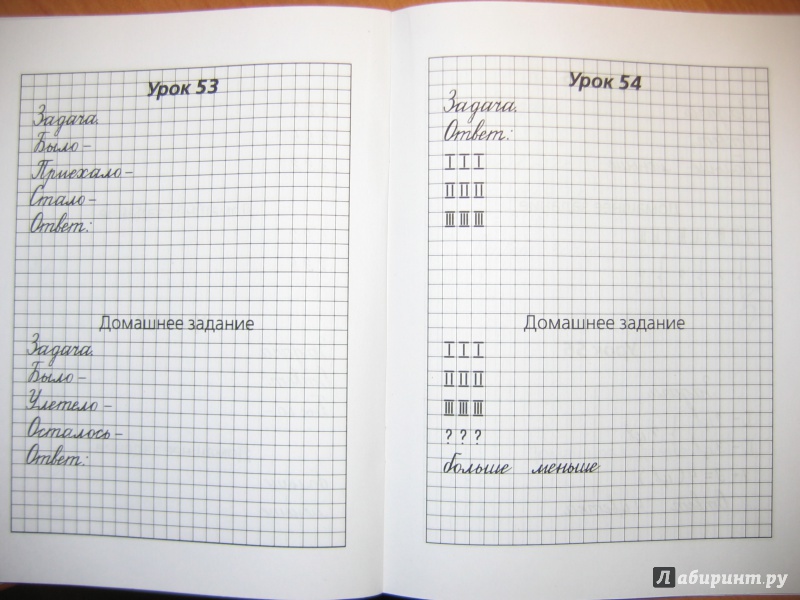 Урок 53
Задача.
Было –
Приехало –
Стало –
Ответ:
Домашнее задание
Задача.
Было –
Улетело –
Осталось –
Ответ:
Урок 54
Задача.
Ответ:
I I I
II II II
III III III
Домашнее задание
I I I
II II II
III III III
? ? ?
больше меньше
Лабиринт.ру